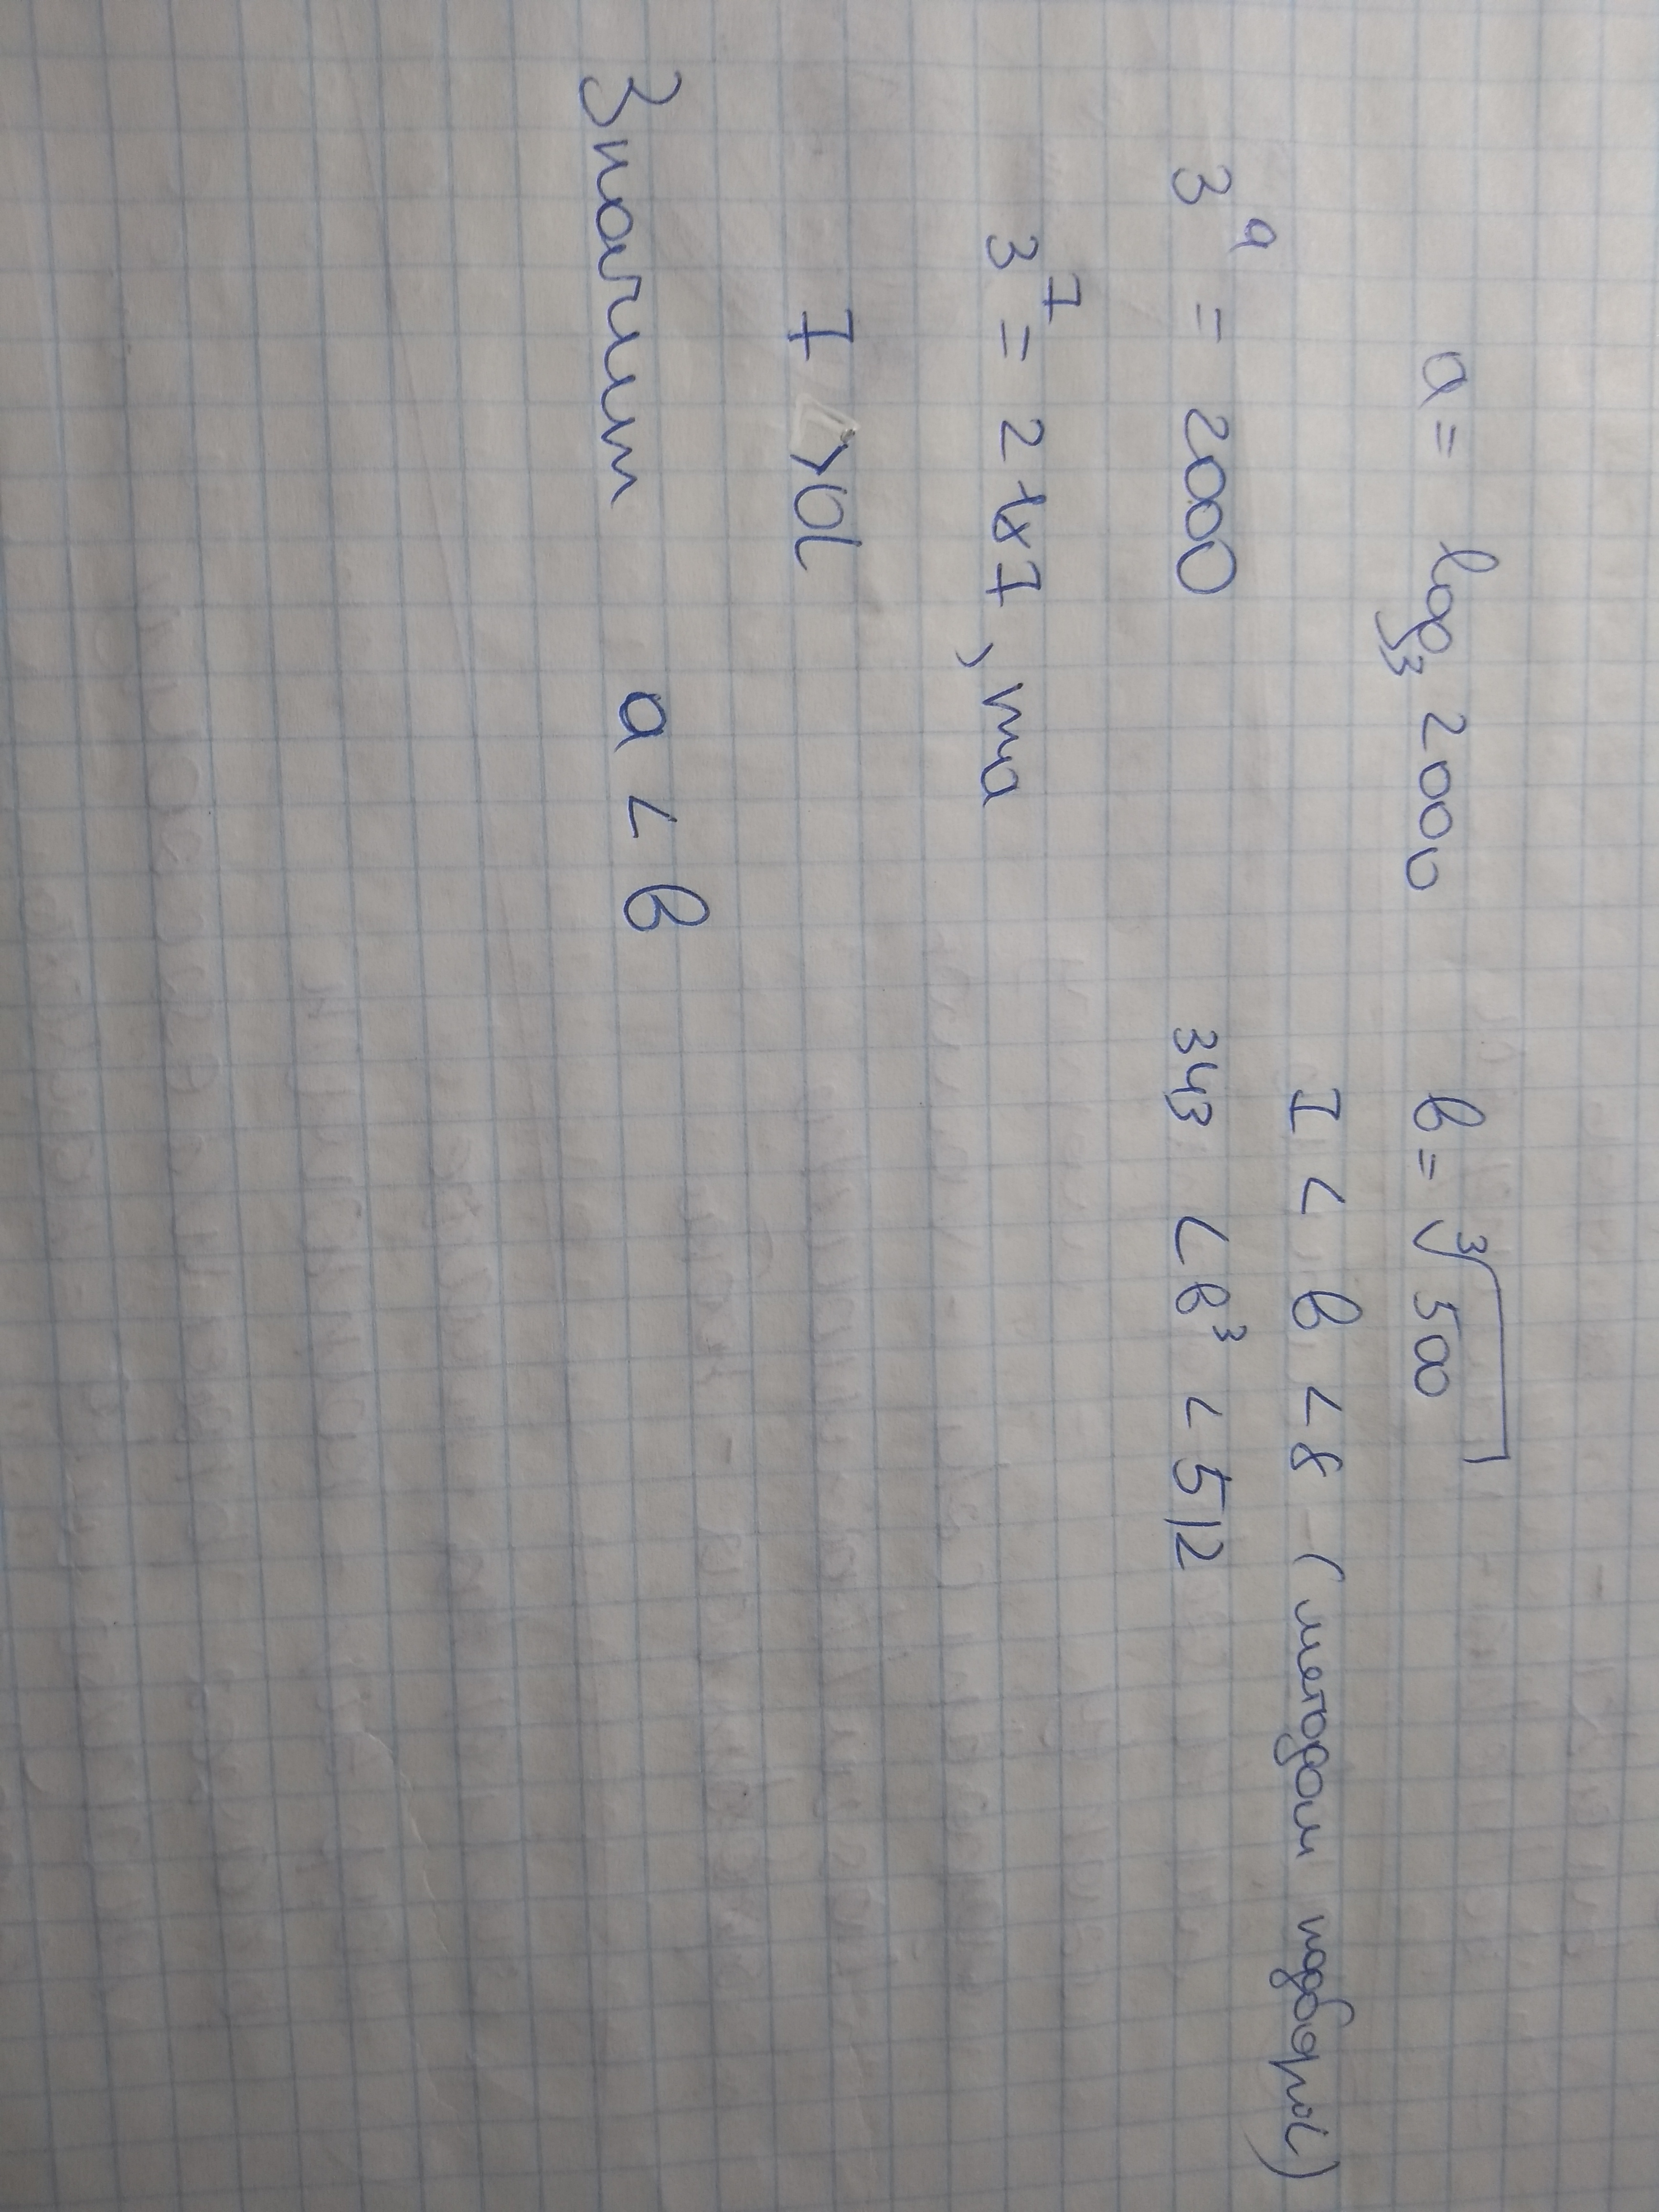 a = log₃ 2000 b = ³√500
7 < b < 8 (методом подбора)
3ᵃ = 2000 343 < b³ < 512
3⁷ = 2187, та
7 > a
Значит a < b